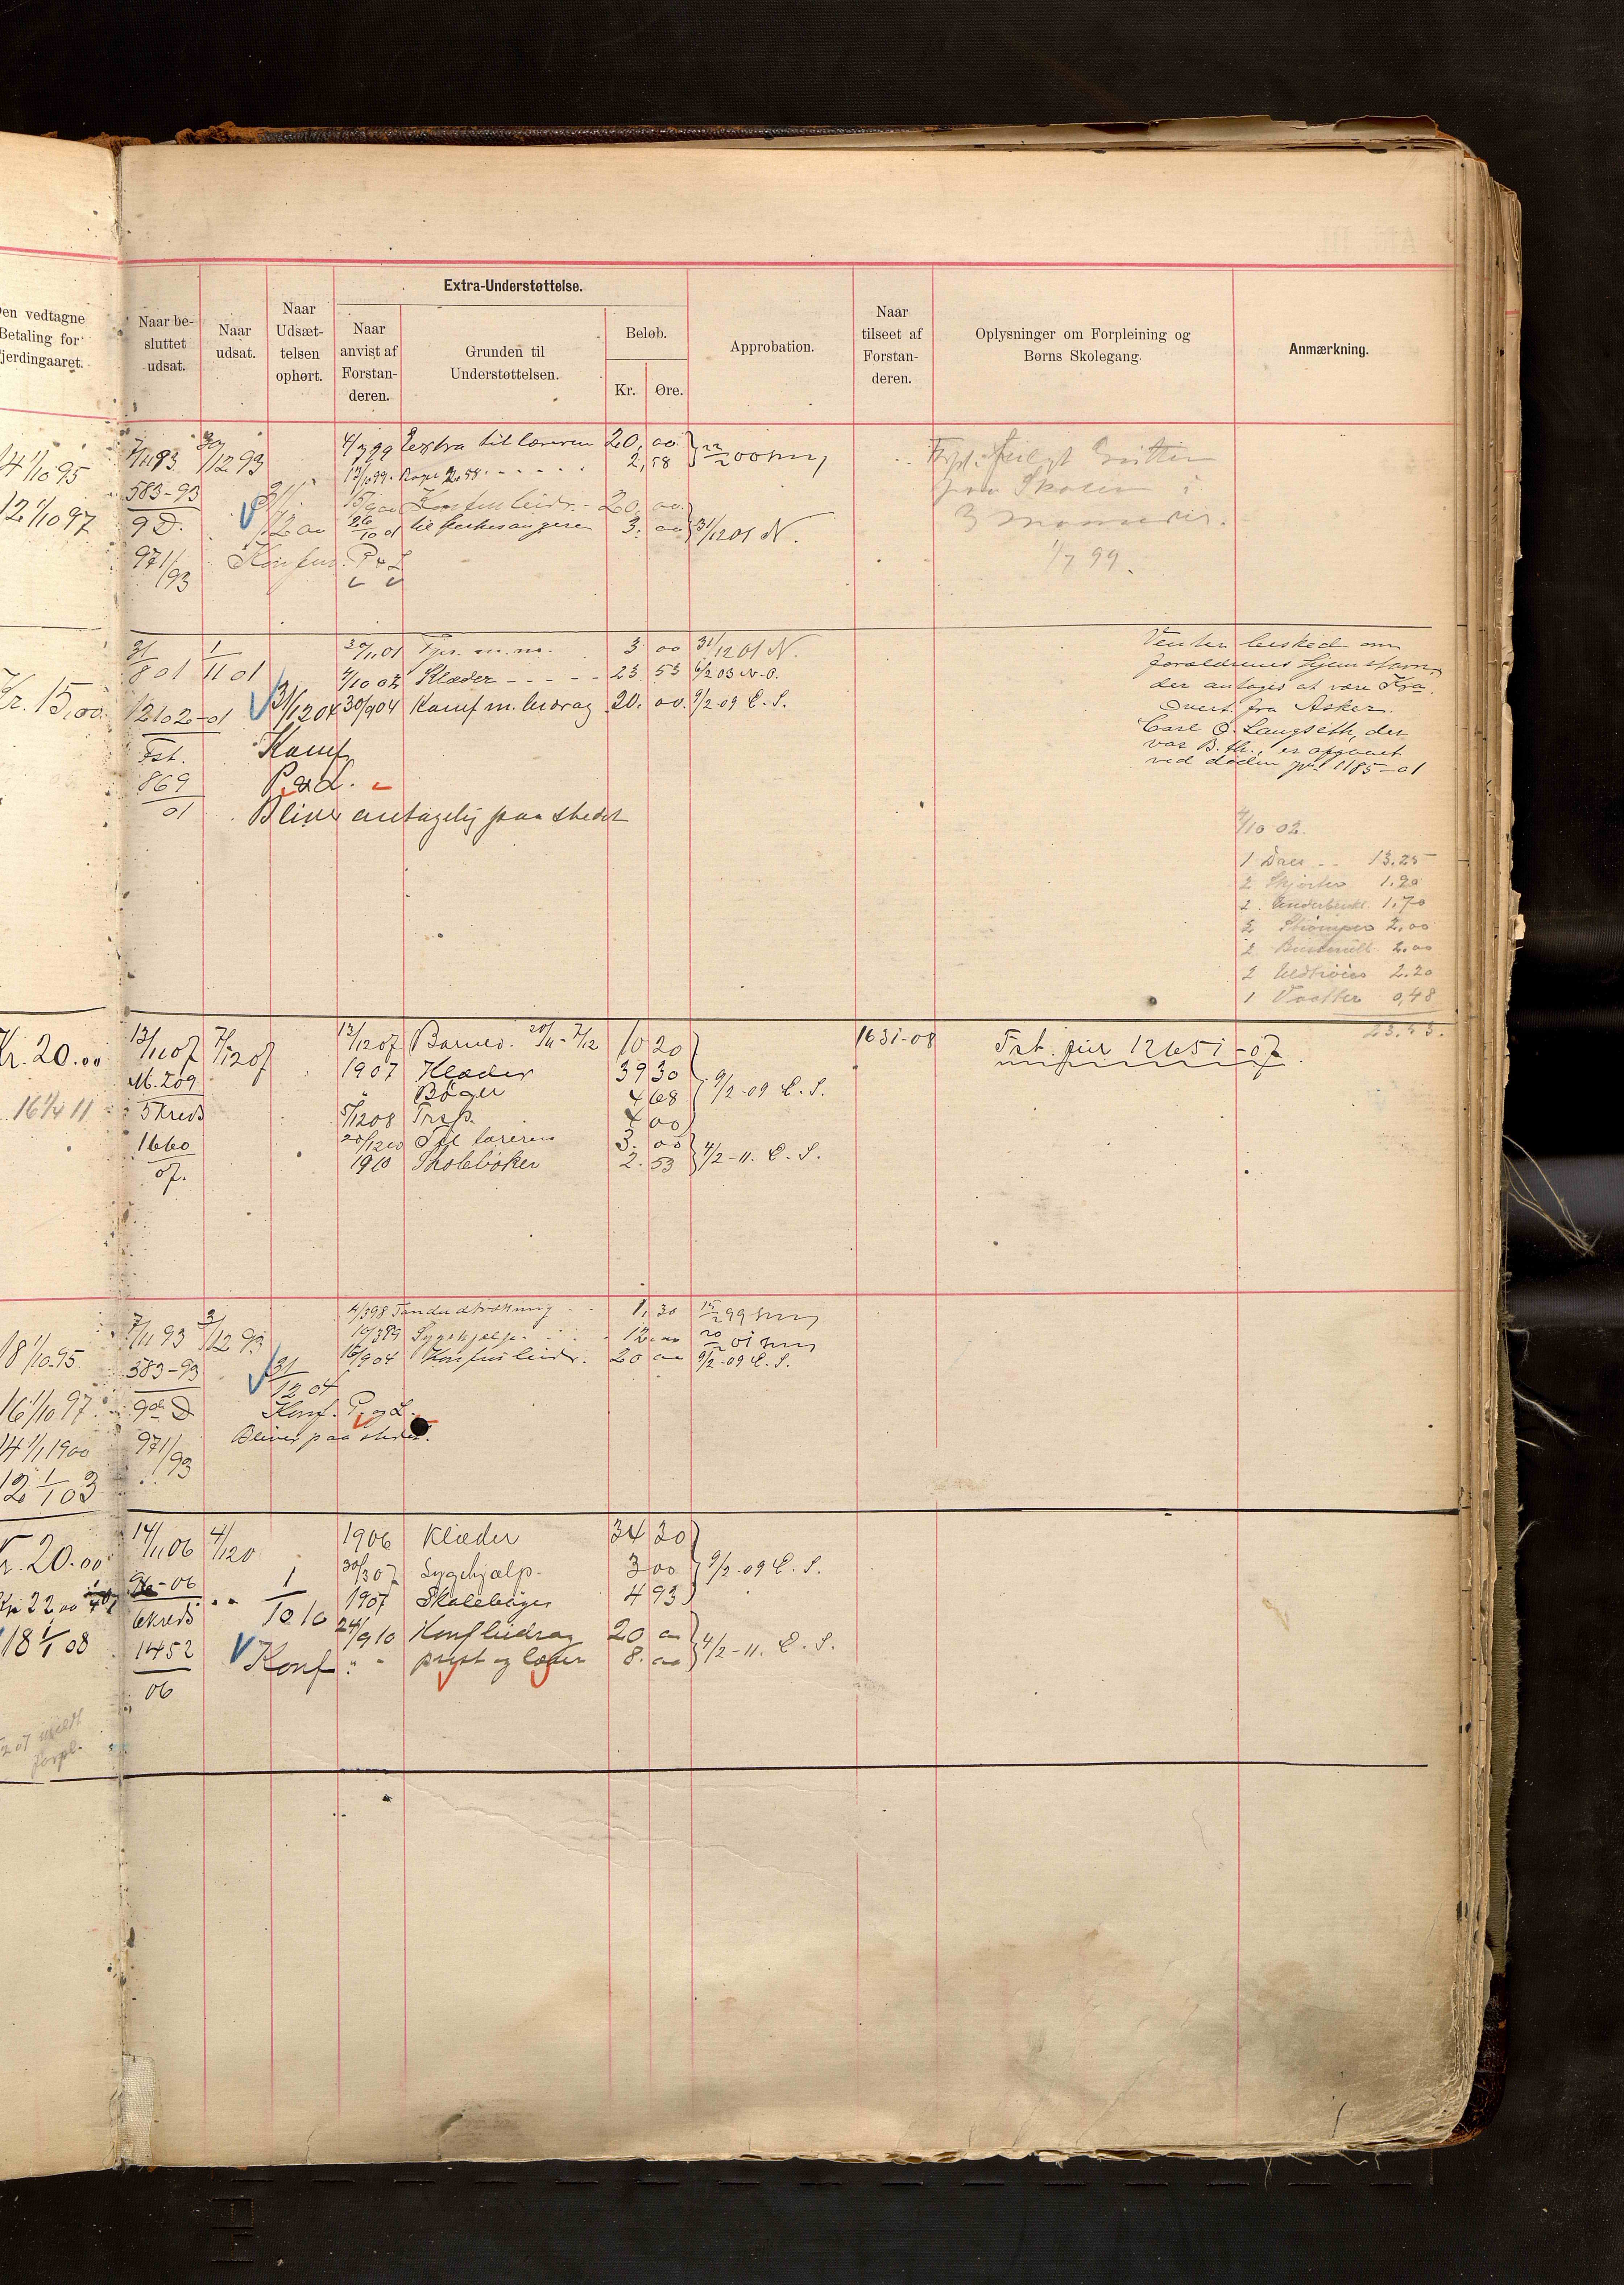 Den vedtagne
Betaling for
Fjerdingaaret.
Naar be-
sluttet
udsat.
Naar
udsat.
Naar
Udsæt-
telsen
ophørt.
Extra-Understøttelse.
Naar
anvist af
Forstan-
deren.
Grunden til
Understøttelsen.
Beløb.
Kr.
Øre.
Approbation.
Naar
tilseet af
Forstan-
deren.
Oplysninger om Forpleining og
Børns Skolegang.
Anmærkning.
14 1/10 95
12 1/10 97
7/11 93 /12 93
583-93
9 D.
971/93
4/7 99 Extra til læreren 20,00
2,58
20,00
26/10 01 til 3,00 31/1201 N.
Konfirm. P & L
paa Skolen i
3
1/7 99.
Kr. 15,00
31/8 01 1/11 01
1210 20-01
Fst.
869/01
31/12 04
30/11 01 3 00 31/12 01 N.
4/10 02 Klæder - - - - - 23 53 6/2 03 N.O.
30/9 04 Konf m. bidrag 20.00 9/2-09 C. S.
Konf
P. & L.
Bliver antagelig paa stedet
Venter besked om
forældrenes hjemstavn,
der antages at være Kra.
Overf. fra Asker.
Carl O. Langseth, der
var B. th., er afgaaet
ved døden 1185-01
4/10 02.
1 13.25
2 Skjorter 1.90
2 Underbenkl. 1.70
2 Strømper 2,00
2 2.00
2 Uldtrøier 2.20
1 0,48
23.53.
Kr. 20.00
16 1/4 11
13/11 07 7/12 07
M. 209
5 kreds
1660/07.
13/12 07 20/11-7/12 10 20
1907 Klæder 39 30
" Bøger 4 68 9/2-09 C. S.
5/12 08 Trsp. 4 00
20/12 10 Til læreren 3.00
1910 Skolebøker 2.53 4/2-11. C. S.
1631-08
Fst. 12651-07
18 1/10 95.
16 1/10 97
14 1/1 1900
12 1/1 03
7/11 93 /12 93
583-93
9de D
971/93
31/12 04
4/3 98 Tandudtrækning 1,30
Sygehjælp 12.00
15/9 04 20 00 9/2-09 C. S.
Konf. P. og L.
Bliver paa stedet.
Kr. 20.00
18 1/1 08
14/11 06 4/12 0
6 kreds
1452/06
1/10 10
1906 Klæder 34 30
30/3 07 Sygehjælp 3 00 9/2-09 C. S.
1907 Skolebøger 4 93
24/9 10 Konf bidrag 20 00
" " prest og 8.00 4/2-11. C. S.
Konf